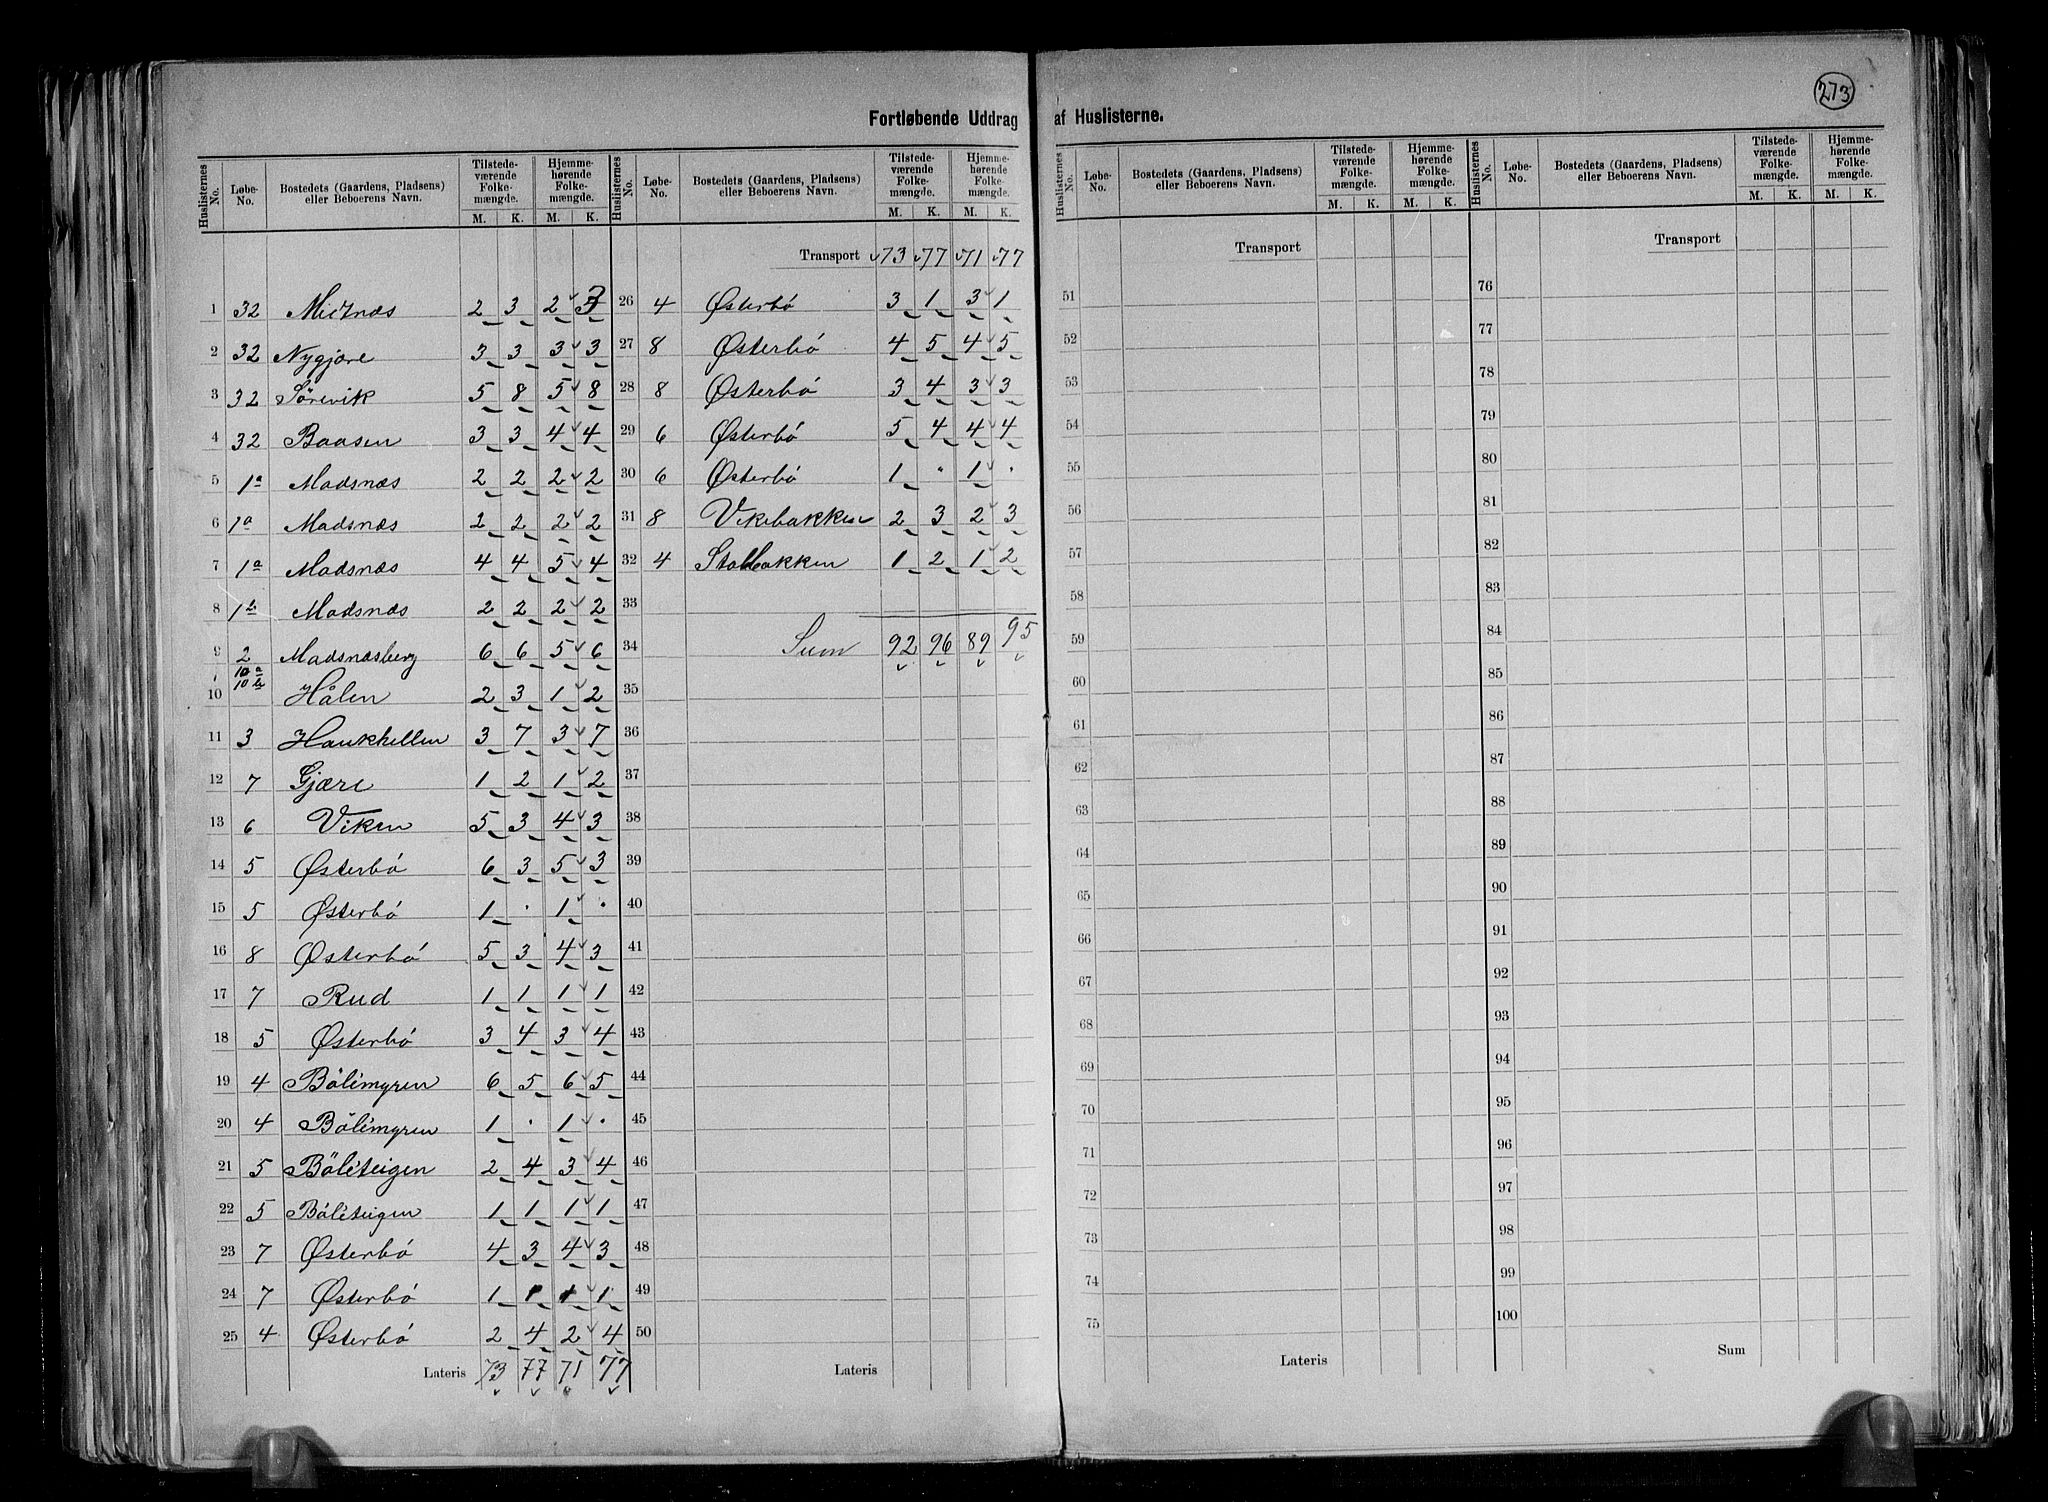 273
Fortløbende Uddrag af Huslisterne.
Huslisternes No. Løbe-No. Bostedets (Gaardens, Pladsens) eller Beboerens Navn. Tilstedeværende Folkemængde. M. K. Hjemmehørende Folkemængde. M. K.
1 32 3 2 3
2 32 Nygjøre 3 3 3 3
3 32 Sørevik 5 8 5 8
4 32 Baasen 3 3 4 4
5 1a Madsnæs 2 2 2 2
6 1a Madsnæs 2 2 2 2
7 1a Madsnæs 4 4 5 4
8 1b Madsnæs 2 2 2 2
9 2 Madsnæsberg 6 6 5 6
10 10a 10b Hålen 2 3 1 2
11 3 Haukhellen 3 7 3 7
12 7 Gjære 1 2 1 2
13 6 Viken 5 3 4 3
14 5 Østerbó 6 3 5 3
15 5 Østerbó 1 · 1 ·
16 8 Østerbó 5 3 4 3
17 7 Rud 1 1 1 1
18 5 Østerbó 3 4 3 4
19 4 Bölimyren 6 5 6 5
20 4 Bölimyren 1 · 1 ·
21 5 Böliteigen 2 4 3 4
22 5 Böliteigen 1 1 1 1
23 7 Østerbó 4 3 4 3
24 7 Østerbó 1 1 1 1
25 4 Østerbó 2 4 2 4
Lateris 73 77 71 77
Huslisternes No. Løbe-No. Bostedets (Gaardens, Pladsens) eller Beboerens Navn. Tilstedeværende Folkemængde. M. K. Hjemmehørende Folkemængde. M. K.
Transport 73 77 71 77
26 4 Østerbó 3 1 3 1
27 8 Østerbó 4 5 4 5
28 8 Østerbó 3 4 3 3
29 6 Østerbó 5 4 4 4
30 6 Østerbó 1 " 1 ·
31 8 Vikebakken 2 3 2 3
32 4 Stolbakken 1 2 1 2
33
34 Sum 92 96 89 95
35
36
37
38
39
40
41
42
43
44
45
46
47
48
49
50
Lateris
Huslisternes No. Løbe-No. Bostedets (Gaardens, Pladsens) eller Beboerens Navn. Tilstedeværende Folkemængde. M. K. Hjemmehørende Folkemængde. M. K.
Transport
51
52
53
54
55
56
57
58
59
60
61
62
63
64
65
66
67
68
69
70
71
72
73
74
75
Lateris
Huslisternes No. Løbe-No. Bostedets (Gaardens, Pladsens) eller Beboerens Navn. Tilstedeværende Folkemængde. M. K. Hjemmehørende Folkemængde. M. K.
Transport
76
77
78
79
80
81
82
83
84
85
86
87
88
89
90
91
92
93
94
95
96
97
98
99
100
Sum